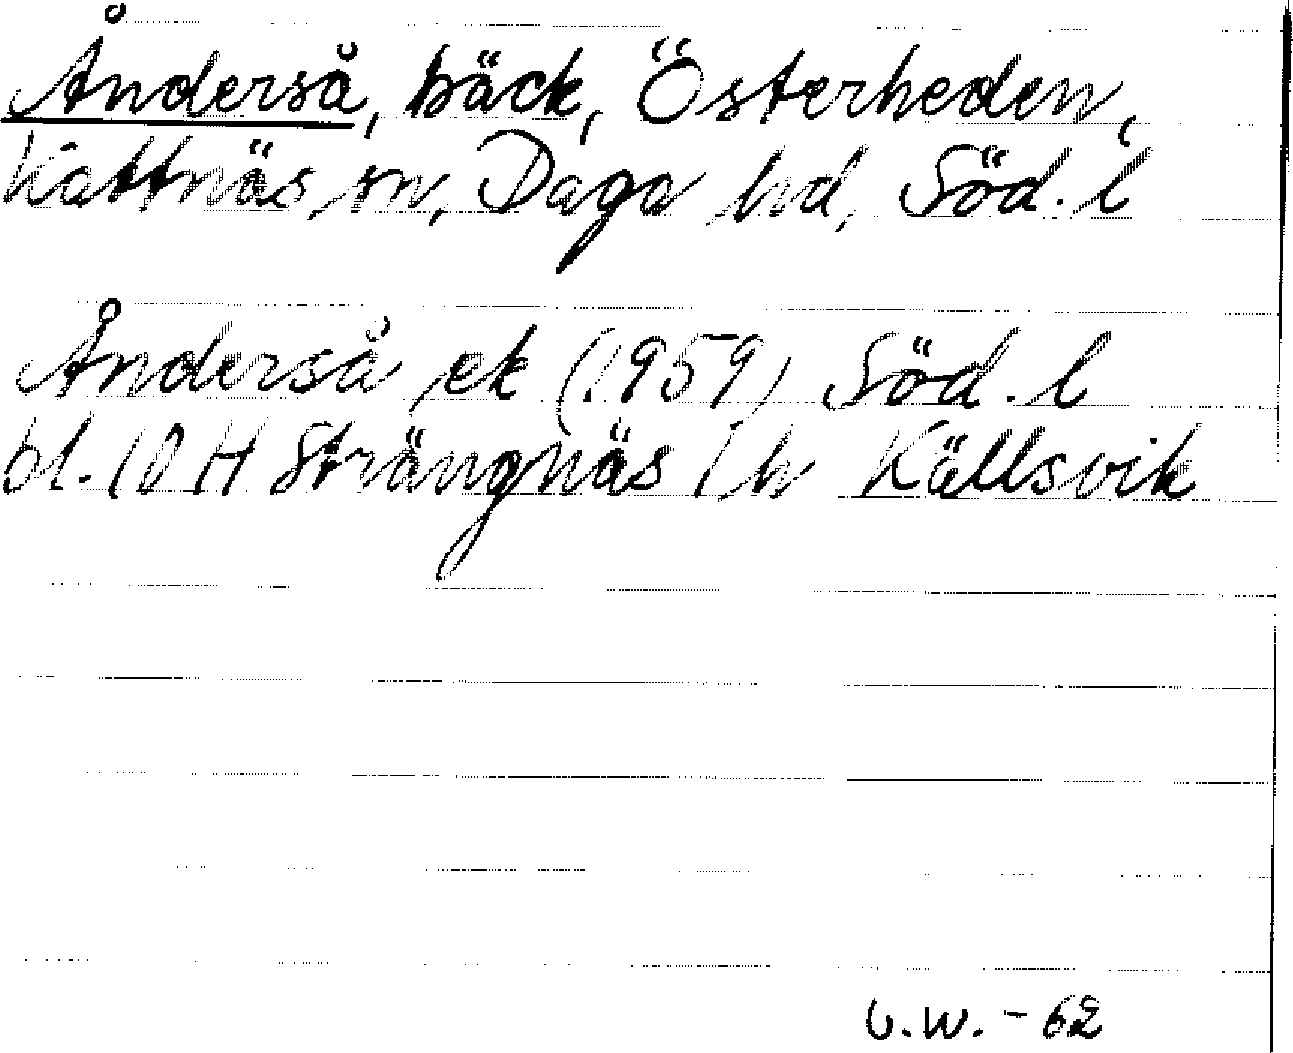 Ånderså, bäck, Österheden,
Kattnäs sn, Daga hd, Söd. l
Ånderså ek (1959) Söd. l
bl. 10 H Strängnäs 1 h Källsvik
U.W. - 62